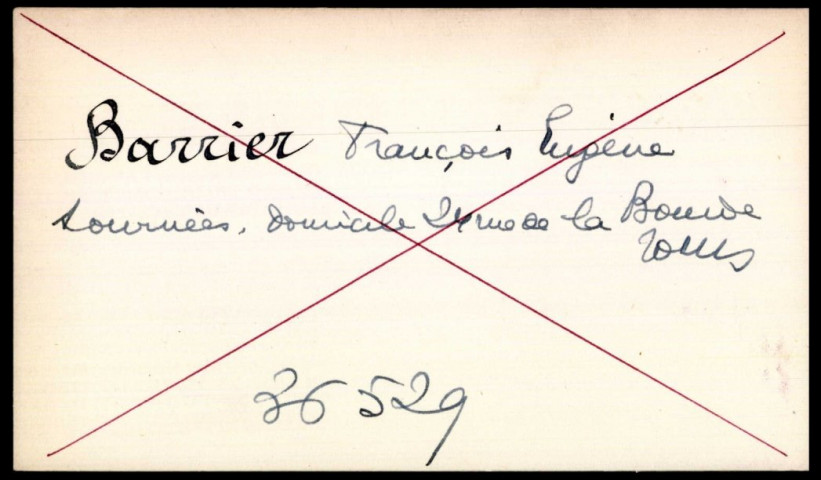 Barrier François Eugène
tournées, domicile 24 rue de la Bourde
Tours
36 529